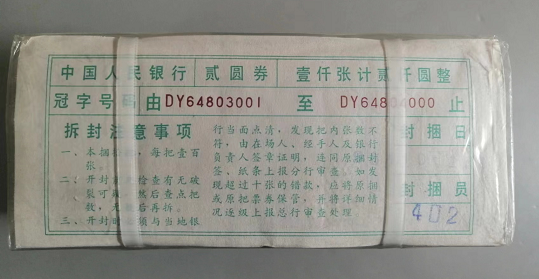 中国人民银行 贰圆券 壹仟张计贰仟圆整
冠字号码由DY64803001 至 DY64804000 止
拆封注意事项
一、本捆 每把壹百
张。
二、开封 检查有无破
裂可 然后查点把
数, 后再拆。
三、开封 须与当地银
行当面点清,发现把内张数不
符,由在场人、经手人及银行
负责人签章证明,连同原捆封
签、纸条上报分行审查。如发
现超过十张的错款,应将原捆
或原把票券保管,并将详细情
况连级上报总行审查处理
封捆日
封捆员
402